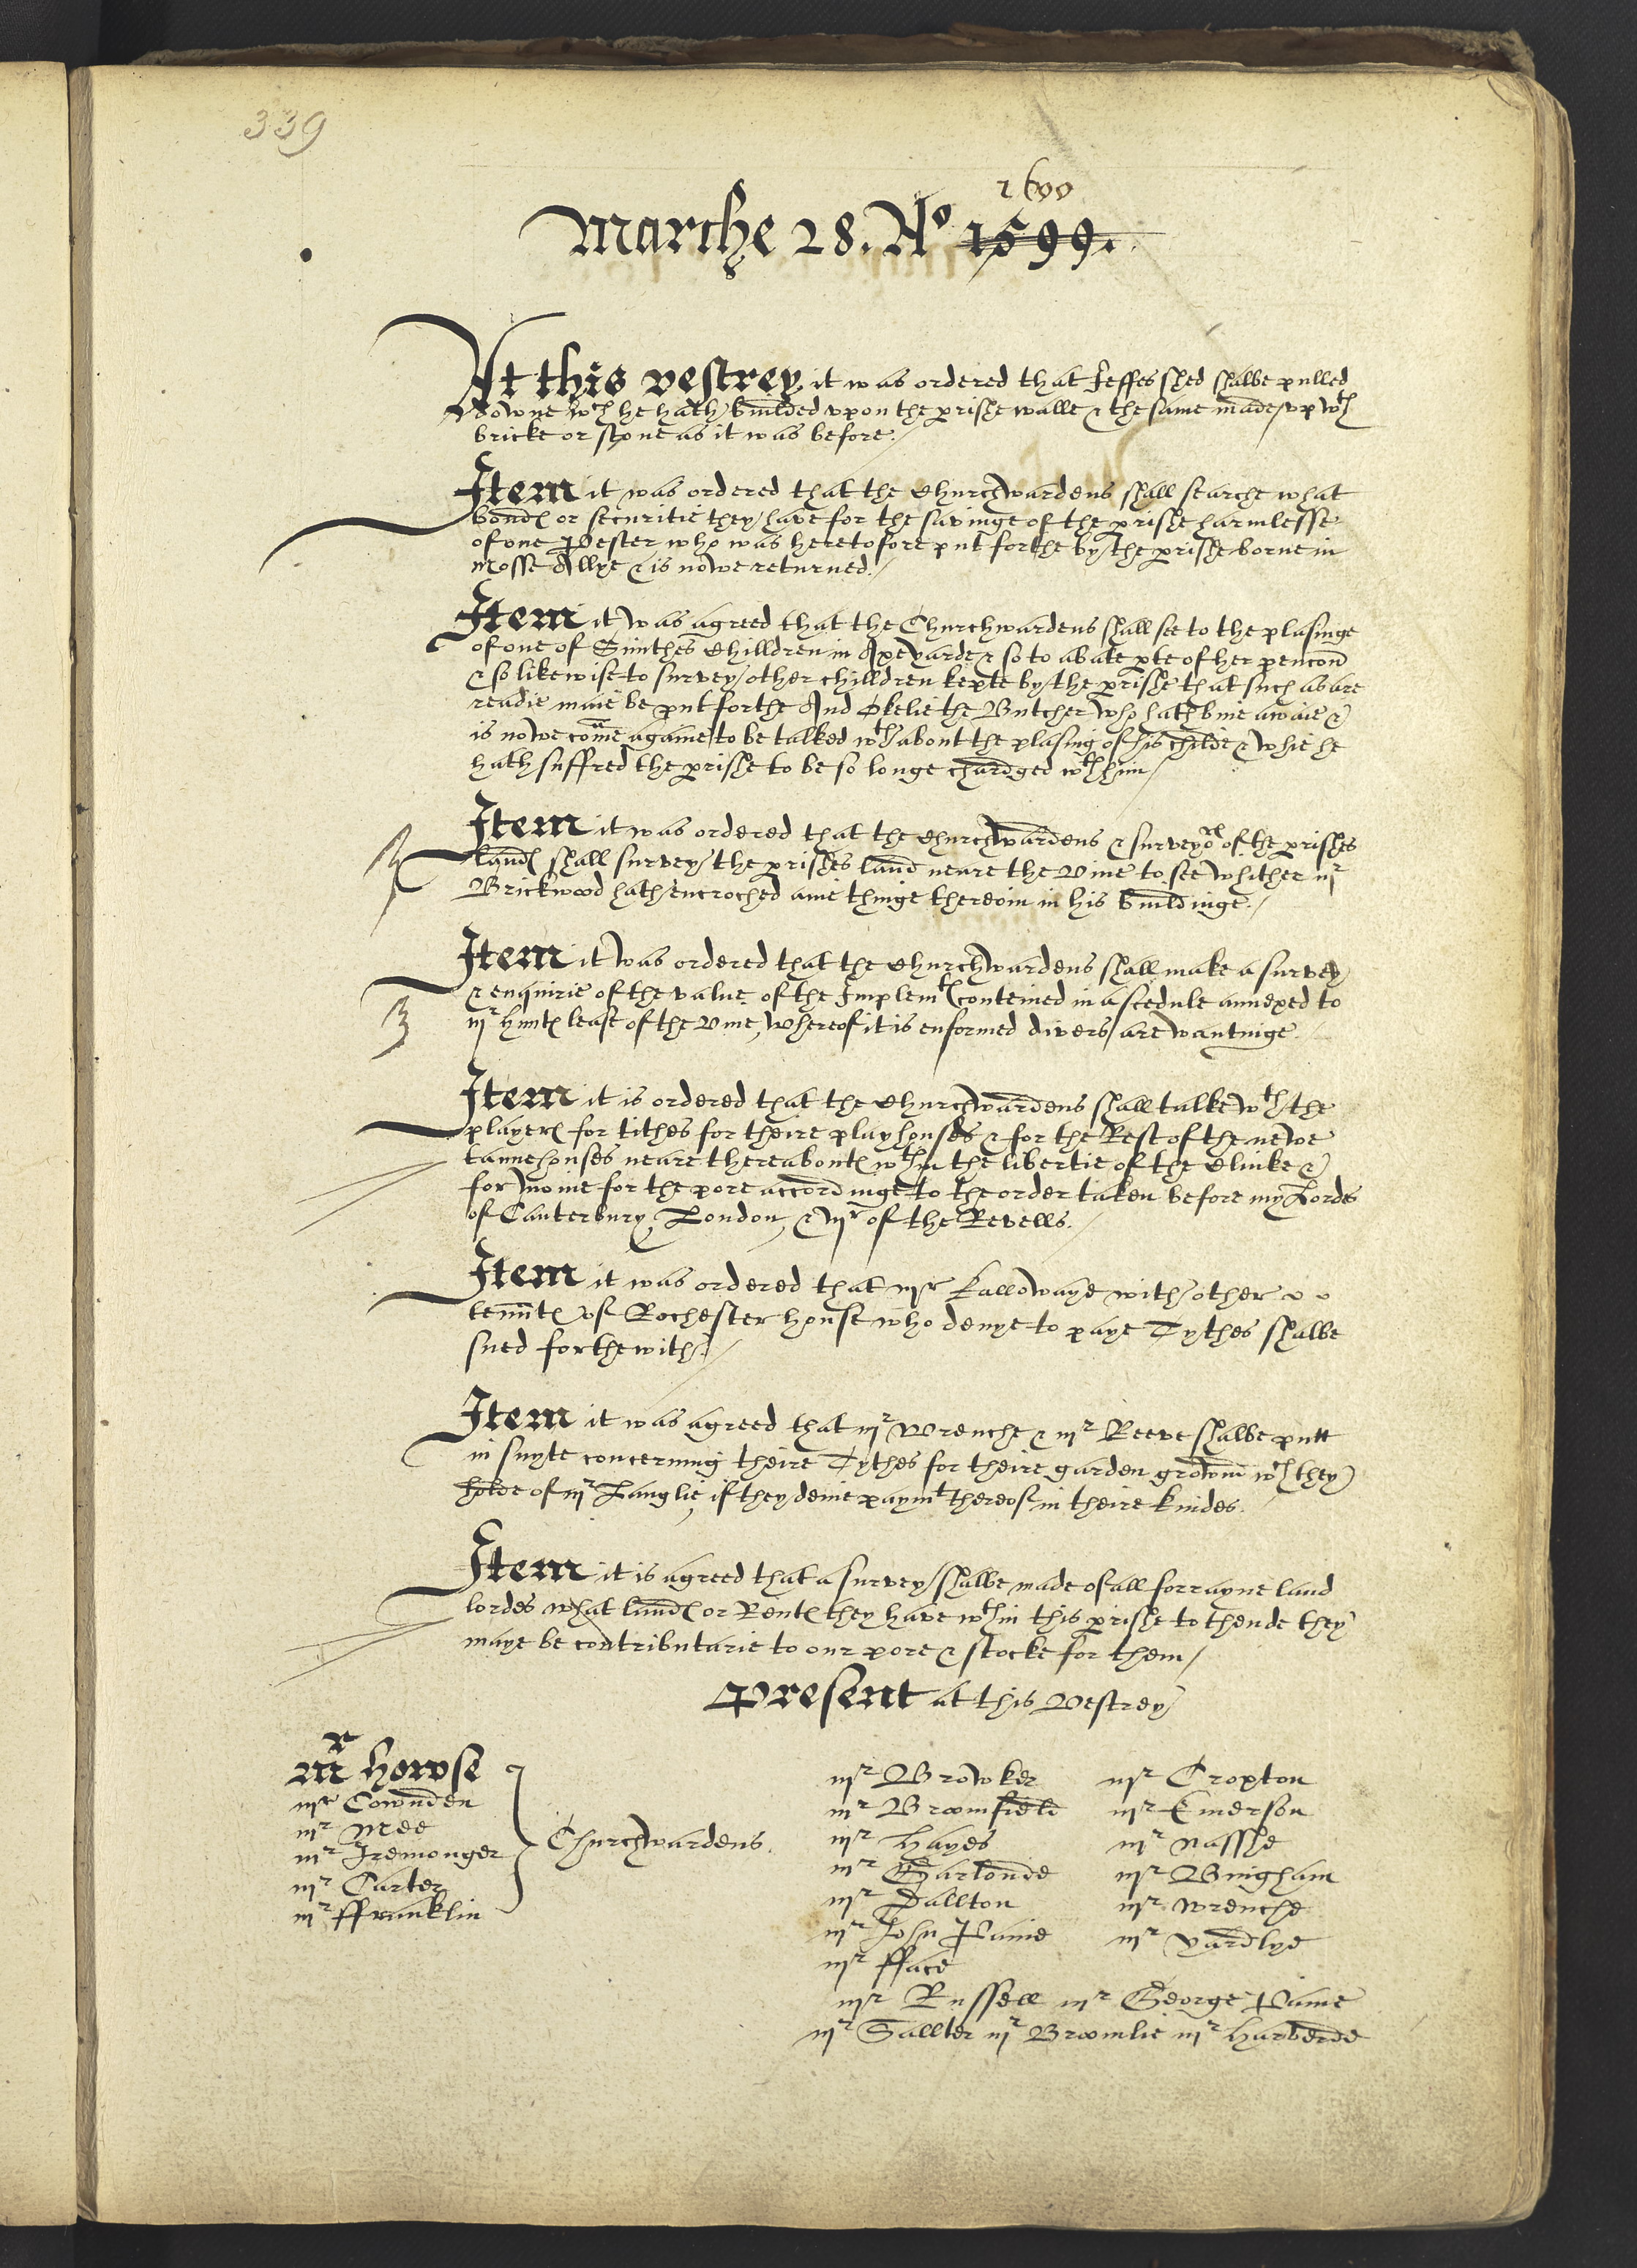 339
1600
Marche 28. Ao 1599.
At this vestrey it was ordered that Jeffes shed shalbe pulled
downe wch he hath buildded vpon the prishe walle & the same made vp wth
bricke or stone as it was before./
Item it was ordered that the Churchwardens shall searche what
bondes or securitie they have for the savinge of the prishe harmlesse
of one Pester who was heretofore put forthe by the prishe borne in
Mosse Allye & is nowe returned./
Item it was agreed that the Churchwardens shall see to the plasinge
of one of Smithes Chilldren in Axeyarde & so to abate pte of her pencon
& so likewise to survey other chilldren kepte by the prishe that such as are
readie maie be put forthe And Okelie the Butcher who hath bine awaie &
is nowe come againe to be talked wth about the plasing of his childe & whie he
hath suffred the prishe to be so longe chardged wth him/
Item it was ordered that the Churchwardens & surveyors of the prishes
landes shall survey the prishes land neare the Vine to see whither mr
Brickwood hath encroched anie thinge thereoin in his buildinge./
Item it was ordered that the Churchwardens shall make a survey
& enquirie of the value of the Implemtes conteined in a scedule annexed to
mr Huntes lease of the Vine, whereof it is enformed divers are wantinge./
Item it is ordered that the Churchwardens shall talke wth the
players for tithes for theire playhouses & for the Rest of the newe
tannehouses neare thereaboutes wthin the libertie of the Clinke &
for monie for the pore accordinge to the order taken before my Lordes
of Canterbury, London, & mr of the Revells./
Item it was ordered that mr Kallowaye with other
tenntes of Rochester house who denye to paye Tythes shalbe
sued forthewith./
Item it was agreed that mr Wrenche & mr Reeve shalbe putt
in suyte concerning theire Tythes for theire garden grownd wch they
holde of mr Langlie, if they denie paymt thereof in theire kindes.
Item it is agreed that a survey shalbe made of all forrayne land
lordes what landes or Rentes they have wthin this prishe to thende they
maye be contributarie to our pore & stocke for them/
Present at this Vestrey
mr Howse
mr Cownden
mr Mee
mr Iremonger
mr Carter
mr ffranklin
Churchwardens.
mr Browker mr Croxton
mr Bromfield mr Emerson
mr Hayes mr Nasshe
mr Garlonde mr Bingham
mr Pallton mr Wrenche
mr John Paine mr Yardlye
mr fface
mr Russell mr George Paine
mr Sallter mr Bromlie mr Harberde